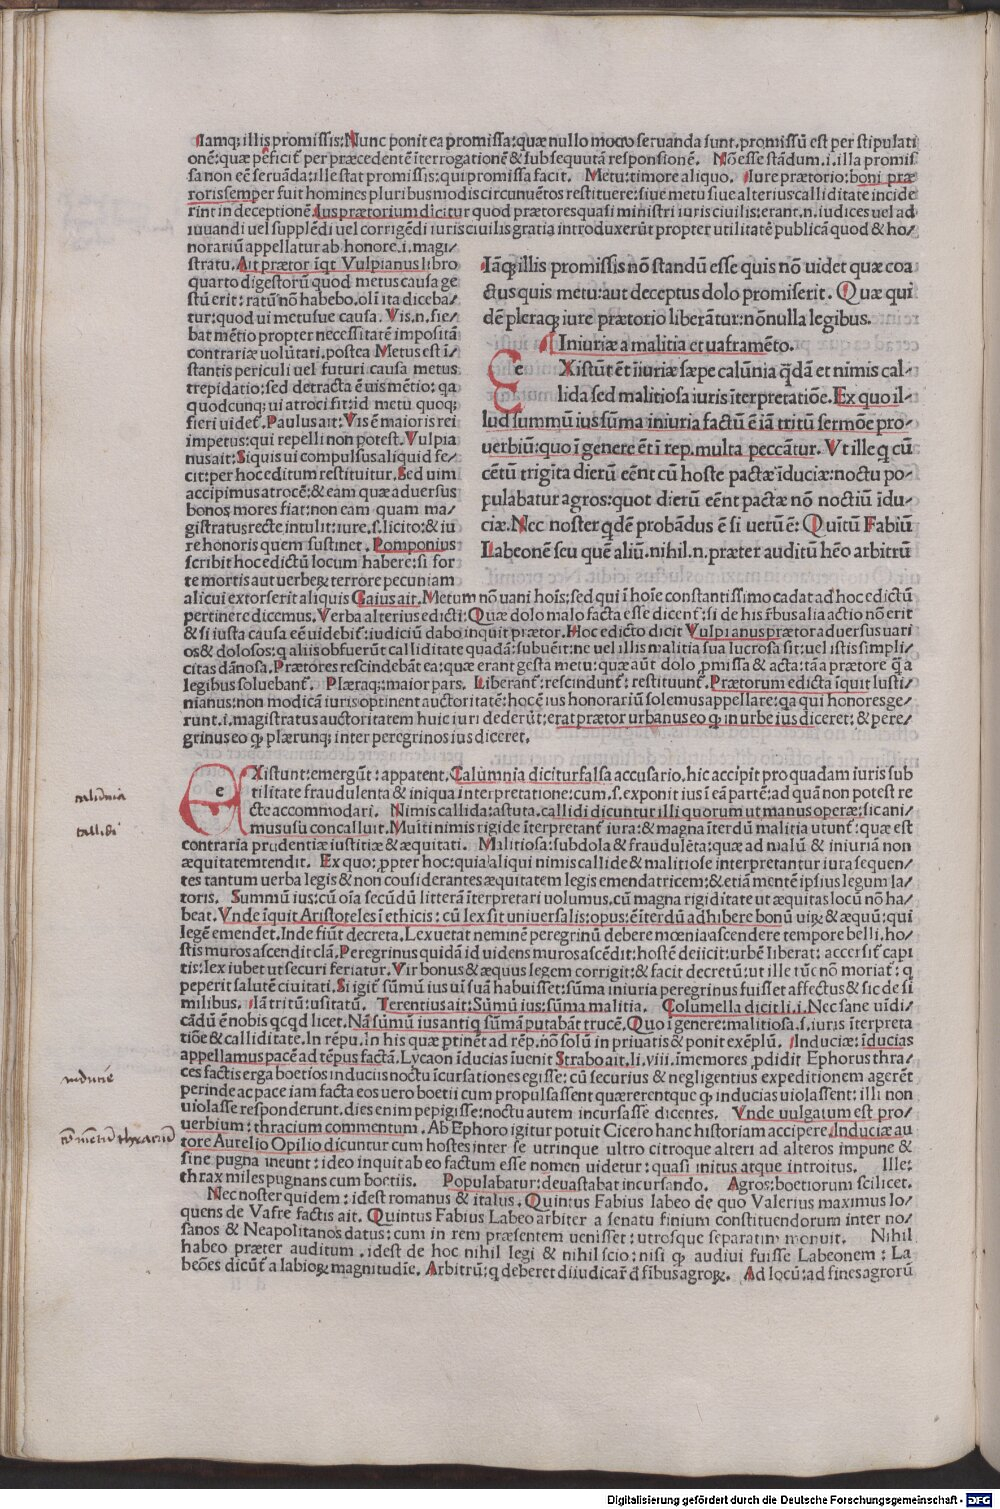 Iamq; illis promissis: Nunc ponit ea promissa: quæ nullo modo seruanda sunt. promissũ est per stipulati
onẽ: quæ perficit᷑ per præcedentẽ ĩterrogationẽ & subsequutã responsionẽ. Nõ esse stãdum .i. illa promis
sa non eẽ seruãda: ille stat promissis: qui promissa facit. Metu: timore aliquo. Iure prætorio: boni præ
roris semper fuit homines pluribus modis circunuẽtos restituere: siue metu siue alterius calliditate incide
rint in deceptionẽ. Ius prætorium dicitur quod prætores quasi ministri iuris ciuilis: erant .n. iudices uel ad
iuuandi uel supplẽdi uel corrigẽdi iuris ciuilis gratia introduxerũt propter utilitatẽ publicã quod & ho/
norariũ appellatur ab honore .i. magi/
stratu. Ait prætor ĩqt Vulpianus libro
quarto digestorũ quod metus causa ge
stũ erit: ratũ nõ habebo. olĩ ita diceba/
tur: quod ui metusue causa. Vis .n. fie/
bat mẽtio propter necessitatẽ impositã
contrariæ uolũtati. postea Metus est ĩ/
stantis periculi uel futuri causa metus
trepidatio: sed detracta ẽ uis mẽtio: qa
quodcunq; ui atroci fit: id metu quoq;
fieri uidet᷑. Paulus ait: Vis ẽ maioris rei
impetus: qui repelli non potest. Vulpia
nus ait: Si quis ui compulsus aliquid fe/
cit: per hoc editum restituitur. Sed uim
accipimus atrocẽ: & eam quæ aduersus
bonos mores fiat: non eam quam ma/
gistratus recte intulit: iure .s. licito: & iu
re honoris quem sustinet. Pomponius
scribit hoc edictũ locum habere: si for
te mortis aut uerberꝝ terrore pecuniam
alicui extorserit aliquis Gaius ait. Metum nõ uani hoĩs: sed qui ĩ hoĩe constantissimo cadat ad hoc edictũ
pertinere dicemus. Verba alterius edicti: Quæ dolo malo facta esse dicent᷑: si de his r̃bus alia actio nõ erit
& si iusta causa eẽ uidebit᷑: iudiciũ dabo inquit prætor. Hoc edicto dicit Vulpianus prætor aduersus uari
os & dolosos: q aliis obfuerũt calliditate quadã: subuẽit: ne uel illis malitia sua lucrosa sit: uel istis simpli/
citas dãnosa. Prætores rescindebãt ea: quæ erant gesta metu: quæ aũt dolo ꝓmissa & acta: tã a prætore q̃ a
legibus soluebant᷑. Plæraq;: maior pars. Liberant᷑: rescindunt᷑: restituunt᷑. Prætorum edicta ĩquit Iusti/
nianus: non modicã iuris optinent auctoritatẽ: hoc ẽ ius honorariũ solemus appellare: qa qui honores ge/
runt .i. magistratus auctoritatem huic iuri dederũt: erat prætor urbanus eo ꝙ in urbe ius diceret: & pere/
grinus eo ꝙ plærunq; inter peregrinos ius diceret.
Iãq; illis promissis nõ standũ esse quis nõ uidet quæ coa
ctus quis metu: aut deceptus dolo promiserit. Quæ qui
dẽ pleraq; iure prætorio liberãtur: nõnulla legibus.
Iniuriæ a malitia et uaframẽto.
EXistũt ẽt iiuriæ sæpe calũnia q̃dã et nimis cal/
lida sed malitiosa iuris ĩterpretatiõe. Ex quo il/
lud summũ ius sũma iniuria factũ ẽ iã tritũ sermõe pro/
uerbiũ: quo ĩ genere ẽt ĩ rep. multa peccãtur. Vt ille q cũ
cẽtũ trigĩta dierũ eẽnt cũ hoste pactæ ĩduciæ: noctu po/
pulabatur agros: quot dierũ eẽnt pactæ nõ noctiũ ĩdu/
ciæ. Nec noster q̃dẽ probãdus ẽ si uerũ ẽ: Quĩtũ Fabiũ
Labeonẽ seu quẽ aliũ. nihil .n. præter auditũ hẽo arbitrũ
EXistunt: emergũt: apparent. Calumnia dicitur falsa accusatio. hic accipit pro quadam iuris sub
tilitate fraudulenta & iniqua interpretatione: cum .s. exponit ius ĩ eã partẽ: ad quã non potest re
cte accommodari. Nimis callida: astuta. callidi dicuntur illi quorum ut manus operæ: sic ani/
mus usu concalluit. Multi nimis rigide ĩterpretant᷑ iura: & magna ĩterdũ malitia utunt᷑: quæ est
contraria prudentiæ iustitiæ & æquitati. Malitiosa: subdola & fraudulẽta: quæ ad malũ & iniuriã non
æquitatem tendit. Ex quo: ꝓpter hoc: quia aliqui nimis callide & malitiose interpretantur iura sequen/
tes tantum uerba legis & non cousiderantes æquitatem legis emendatricem: & etiã mentẽ ipsius legum la/
toris. Summũ ius: cũ oĩa secũdũ litterã ĩterpretari uolumus. cũ magna rigiditate ut æquitas locũ nõ ha/
beat. Vnde ĩquit Aristoteles ĩ ethicis: cũ lex sit uniuersalis: opus: ẽ ĩterdũ adhibere bonũ uiꝝ & æquũ: qui
legẽ emendet. Inde fiũt decreta. Lex uetat neminẽ peregrinũ debere mœnia ascendere tempore belli. ho/
stis muros ascendit clã. Peregrinus quidã id uidens muros ascẽdit: hostẽ deiicit: urbẽ liberat: accersit᷑ capi
tis: lex iubet ut securi feriatur. Vir bonus & æquus legem corrigit: & facit decretũ: ut ille tũc nõ moriat᷑: q
peperit salutẽ ciuitati. Si igit᷑ sũmũ ius uĩ suã habuisset: sũma iniuria peregrinus fuisset affectus & sic de si
milibus. Iã tritũ: usitatũ. Terentius ait: Sũmũ ius: sũma malitia. Columella dicit li. i. Nec sane uĩdi/
cãdũ ẽ nobis qcqd licet. Nã sũmũ ius antiq sũmã putabãt trucẽ. Quo ĩ genere: malitiosa .s. iuris ĩterpreta
tiõe & calliditate. In repu. In his quæ ptinẽt ad rẽp. nõ solũ in priuatis & ponit exẽplũ. Induciæ: ĩducias
appellamus pacẽ ad tẽpus factã. Lycaon ĩducias ĩuenit Strabo ait. li. viii. ĩmemores ꝓdidit Ephorus thra/
ces factis erga boetios induciis noctu ĩcursationes egisse: cũ securius & negligentius expeditionem agerẽt
perinde ac pace iam facta eos uero boetii cum propulsassent quærerentque ꝙ inducias uiolassent: illi non
uiolasse responderunt. dies enim pepigisse: noctu autem incursasse dicentes. Vnde uulgatum est pro/
uerbium: thracium commentum. Ab Ephoro igitur potuit Cicero hanc historiam accipere. Induciæ au
tore Aurelio Opilio dicuntur cum hostes inter se utrinque ultro citroque alteri ad alteros impune &
sine pugna ineunt: ideo inquit ab eo factum esse nomen uidetur: quasi initus atque introitus. Ille:
thrax miles pugnans cum boetiis. Populabatur: deuastabat incursando. Agros: boetiorum scilicet.
Nec noster quidem: idest romanus & italus. Quintus Fabius labeo de quo Valerius maximus lo/
quens de Vafre factis ait. Quintus Fabius Labeo arbiter a senatu finium constituendorum inter no/
sanos & Neapolitanos datus: cum in rem præsentem uenisset: utrosque separatim monuit. Nihil
habeo præter auditum. idest de hoc nihil legi & nihil scio: nisi ꝙ audiui fuisse Labeonem: La
beões dicũt᷑ a labioꝝ magnitudĩe. Arbitrũ: q deberet diiudicar̃ d̃ fĩbus agroꝝ. Ad locũ: ad fines agrorũ
calũnia
callidi
induciæ
Digitalisierung gefördert durch die Deutsche Forschungsgemeinschaft - DFG